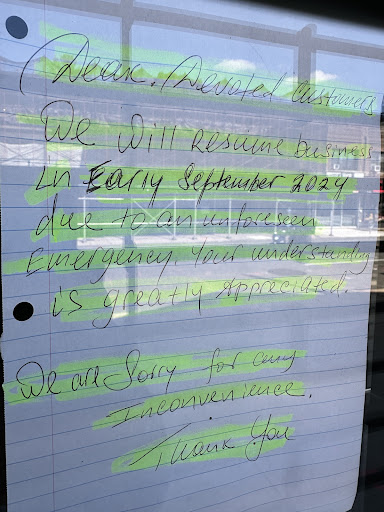 Dear. Devoted Customers
We will resume business
In Early September 2024
due to an unforeseen
Emergency. Your understandg
is greatly Appreciated.
We are Sorry for any
Inconvenience.
Thank You